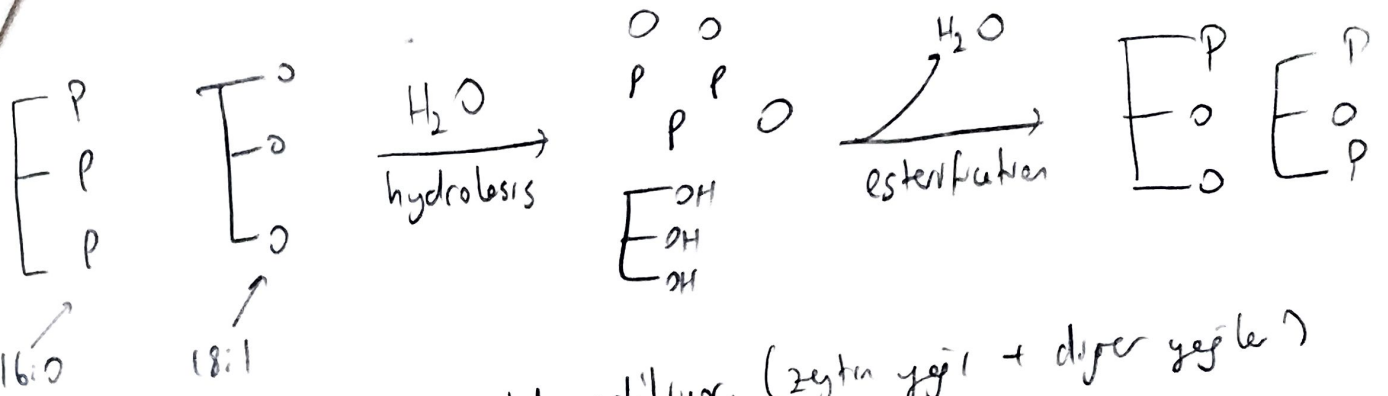 P P P
O O O
16:0
18:1
H₂O
hydrolosis
O O
P P
P O
OH
OH
OH
H₂O
esterification
P O O
P O P
(zeytin yağı + diğer yağlar)